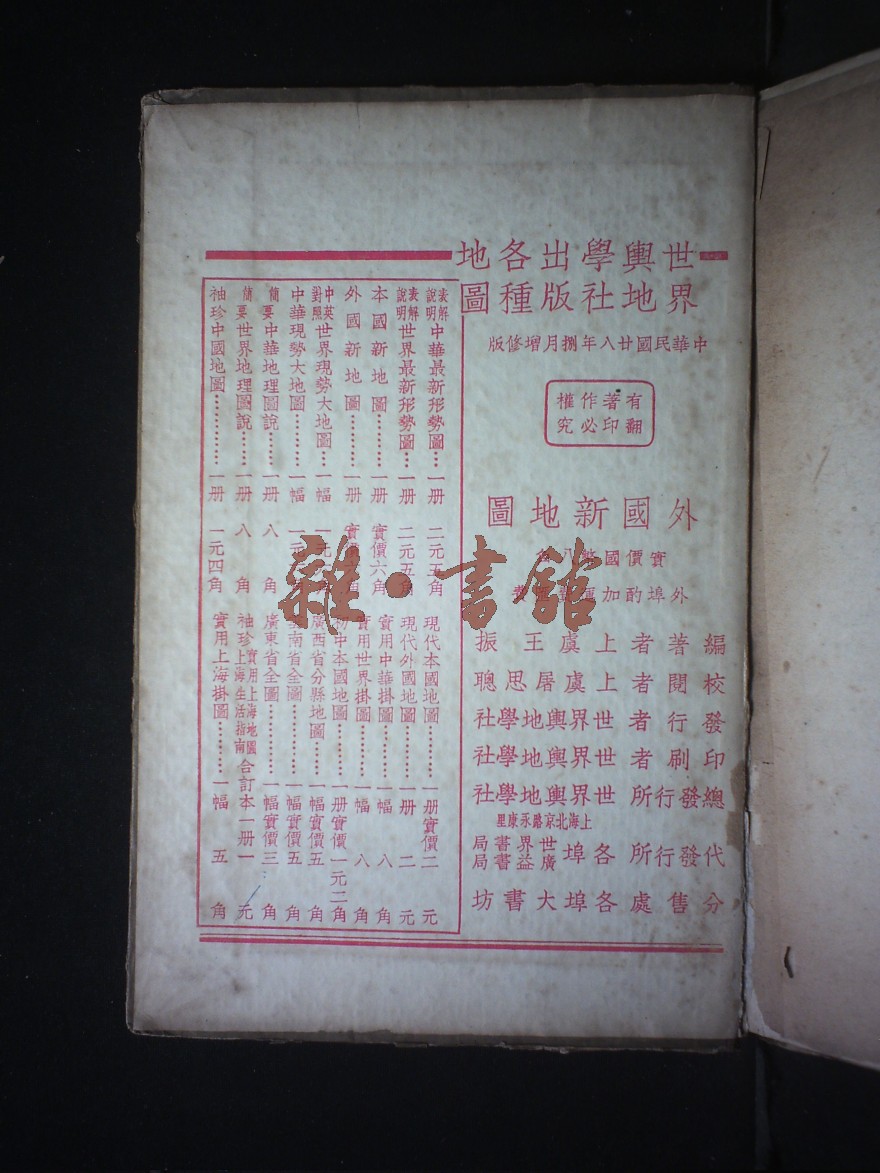 世界輿地學社出版各種地圖
中華民國廿八年捌月增修版
有著作權
翻印必究
外國新地圖
實價國幣八角
外埠酌加
編著者 上虞 王振
校閱者 上虞 屠思聰
發行者 世界輿地學社
印刷者 世界輿地學社
總發行所 世界輿地學社
上海北京路永康里
代發行所 各埠 世界書局 廣益書局
分售處 各埠大書坊
表解說明 中華最新形勢圖……一册 二元五角
表解說明 世界最新形勢圖……一册 二元五角
本國新地圖……一册 實價六角
外國新地圖……一册 實價 角
中英對照 世界現勢大地圖……一幅 一元
中華現勢大地圖……一幅 一元
簡要中華地理圖說……一册 八角
簡要世界地理圖說……一册 八角
袖珍中國地圖……一册 一元四角
現代本國地圖……一册實價二元
現代外國地圖……一册 二元
實用中華掛圖……一幅 八角
實用世界掛圖……一幅 八角
初中本國地圖……一册實價一元二角
廣西省分縣地圖……一幅實價五角
南省全圖……一幅實價五角
廣東省全圖……一幅實價三角
袖珍 實用上海地圖 上海生活指南 合訂本一册 一元
實用上海掛圖……一幅 五角
雜·書館